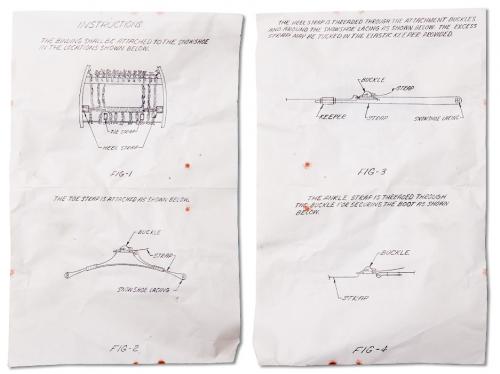 INSTRUCTIONS
THE BINDING SHALL BE ATTACHED TO THE SNOWSHOE
IN THE LOCATIONS SHOWN BELOW.
TOE STRAP
HEEL STRAP
FIG-1
THE TOE STRAP IS ATTACHED AS SHOWN BELOW.
BUCKLE
STRAP
SNOWSHOE LACING
FIG-2
THE HEEL STRAP IS THREADED THROUGH THE ATTACHMENT BUCKLES
AND AROUND THE SNOWSHOE LACING AS SHOWN BELOW. THE EXCESS
STRAP MAY BE TUCKED IN THE ELASTIC KEEPER PROVIDED.
BUCKLE
STRAP
KEEPER
STRAP
SNOWSHOE LACING
FIG-3
THE ANKLE STRAP IS THREADED THROUGH
THE BUCKLE FOR SECURING THE BOOT AS SHOWN
BELOW.
BUCKLE
STRAP
FIG-4